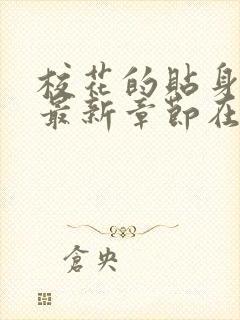 校花的貼身
最新章節在
倉央